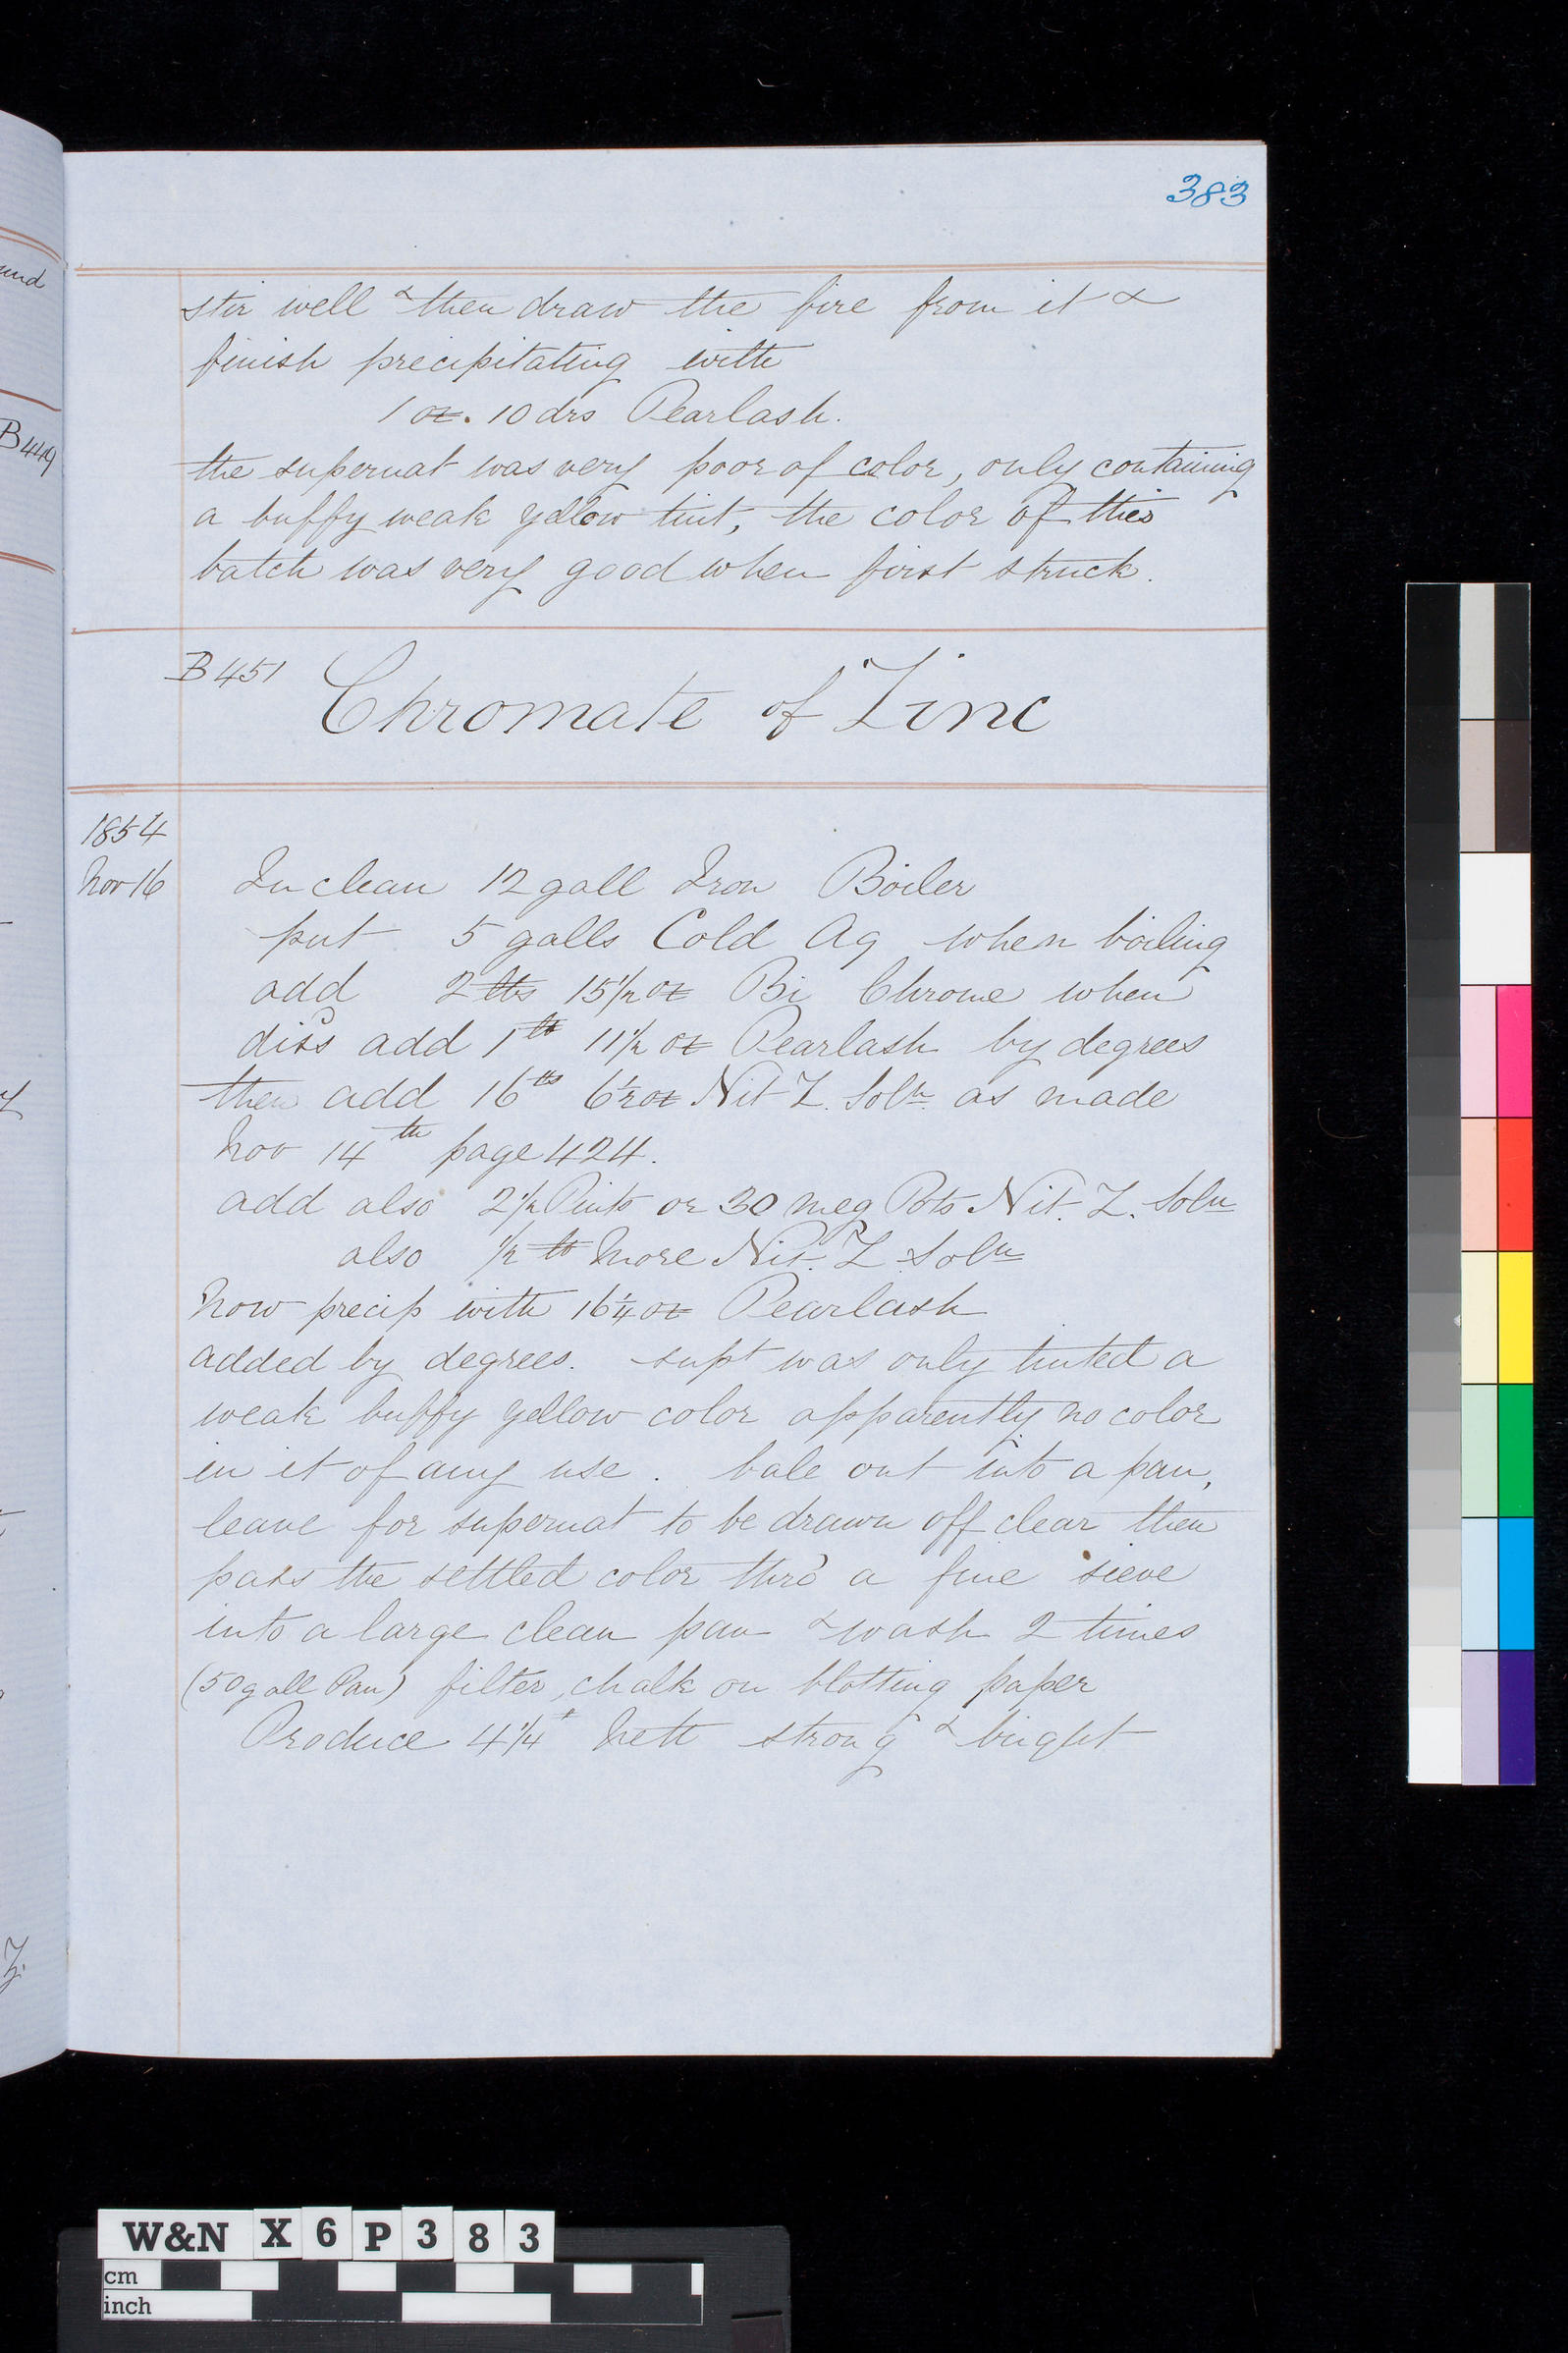 383
und
B449
stir well & then draw the fire from it &
finish precipitating with
1 oz. 10 drs Pearlash.
the supernat was very poor of color, only containing
a buffy weak yellow tint, the color of this
batch was very good when first struck.
B451 Chromate of Zinc
1854
Nov 16 In clean 12 gall Iron Boiler
put 5 galls Cold Aq when boiling
add 2 lbs 15 1/2 oz Bi Chrome when
diss add 1 lb 11 1/2 oz Pearlash by degrees
then add 16 lbs 6 1/2 oz Nit Z. Soln as made
Nov 14th page 424.
add also 2 1/2 Pints or 30 meg Pots Nit. Z. Soln
also 1/2 lb More Nit. Z Soln
Now precip with 16 1/4 oz Pearlash
added by degrees. supt was only tinted a
weak buffy yellow color apparently no color
in it of any use. bale out into a pan,
leave for supernat to be drawn off clear then
pass the settled color thro' a fine sieve
into a large clean pan & wash 2 times
(50 gall Pan) filter, chalk on blotting paper
Produce 4 1/4 Nett strong & bright
W&N X6P383
cm
inch